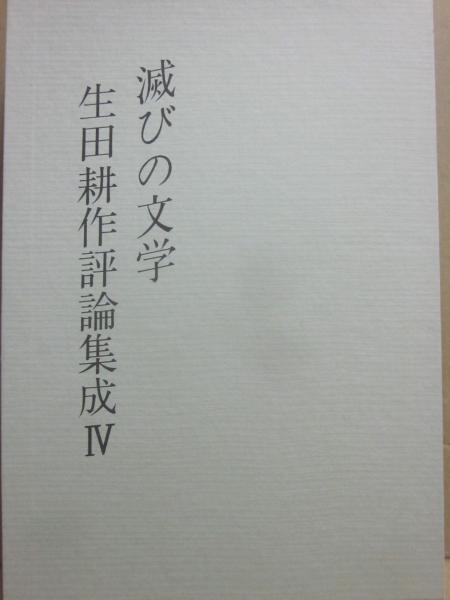 滅びの文学
生田耕作評論集成Ⅳ